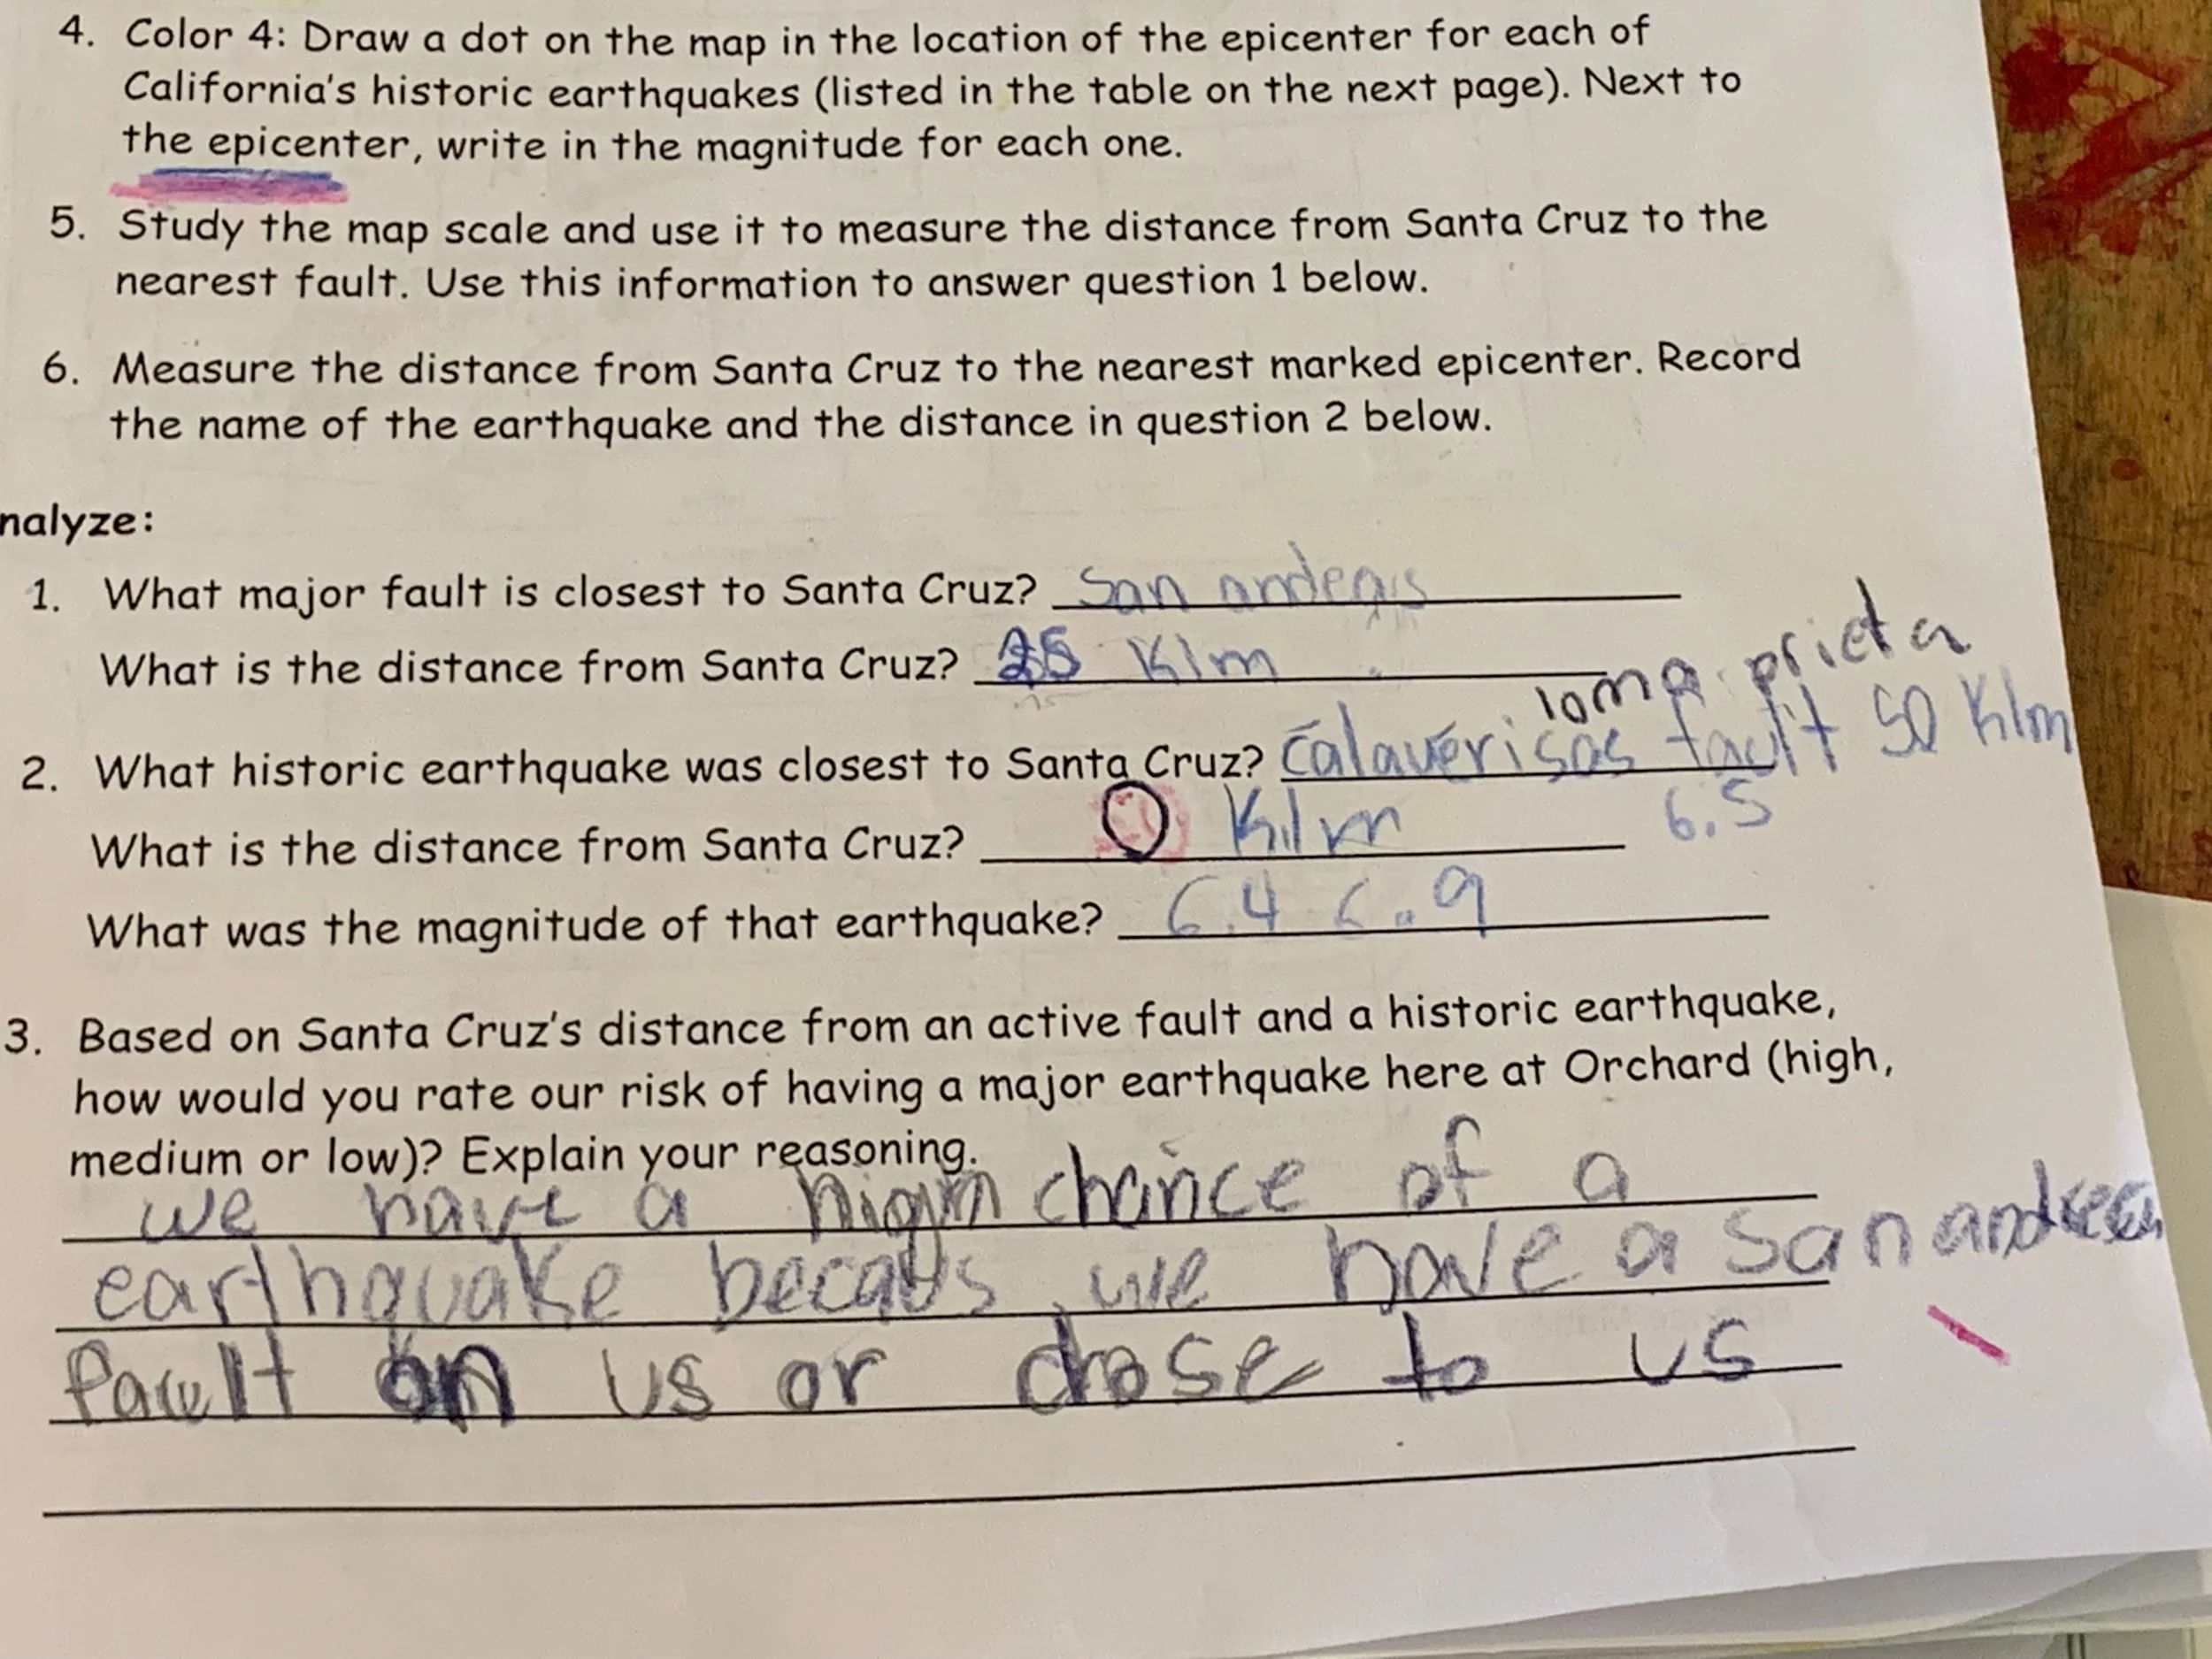 4. Color 4: Draw a dot on the map in the location of the epicenter for each of
California's historic earthquakes (listed in the table on the next page). Next to
the epicenter, write in the magnitude for each one.
5. Study the map scale and use it to measure the distance from Santa Cruz to the
nearest fault. Use this information to answer question 1 below.
6. Measure the distance from Santa Cruz to the nearest marked epicenter. Record
the name of the earthquake and the distance in question 2 below.
nalyze:
1. What major fault is closest to Santa Cruz? San andeas
What is the distance from Santa Cruz? 25 Klm
loma prieta
2. What historic earthquake was closest to Santa Cruz? Calaverisas fault 50 Klm
What is the distance from Santa Cruz? 0 Klm 6.5
What was the magnitude of that earthquake? 6.4 6.9
3. Based on Santa Cruz's distance from an active fault and a historic earthquake,
how would you rate our risk of having a major earthquake here at Orchard (high,
medium or low)? Explain your reasoning.
we have a high chance of a
earthquake becaus we have a San
fault on us or close to us